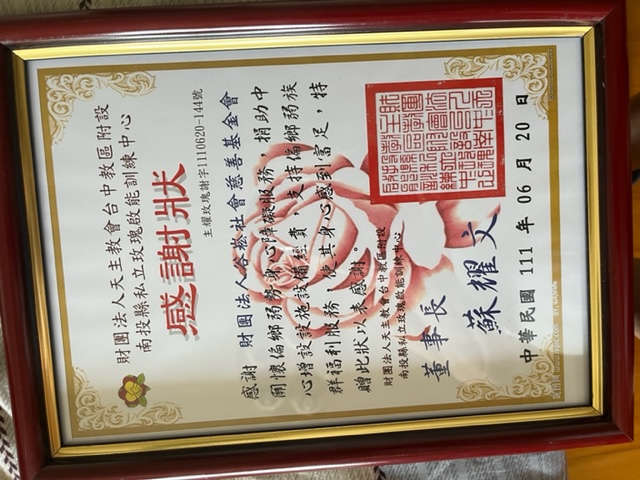 財團法人天主教會台中教區附設
南投縣私立玫瑰啟能訓練中心
感謝狀
主耀玫瑰謝字1110620-144號
感謝 財團法人谷崧社會慈善基金會
關懷偏鄉弱勢身心障礙服務，捐助中
心增設設施設備經費，支持偏鄉弱族
群福利服務，使其身心感到富足，特
贈此狀以表感謝。
財團法人天主教會台中教區附設
南投縣私立玫瑰啟能訓練中心
董事長 蘇耀文
中華民國 111 年 06 月 20 日